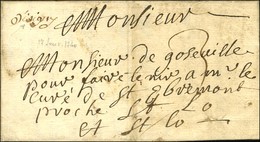 Monsieur
Monsieur de goseuille
pour faire tenir a mr le
Curé de St Ebremont
proche St Lo
a St Lo